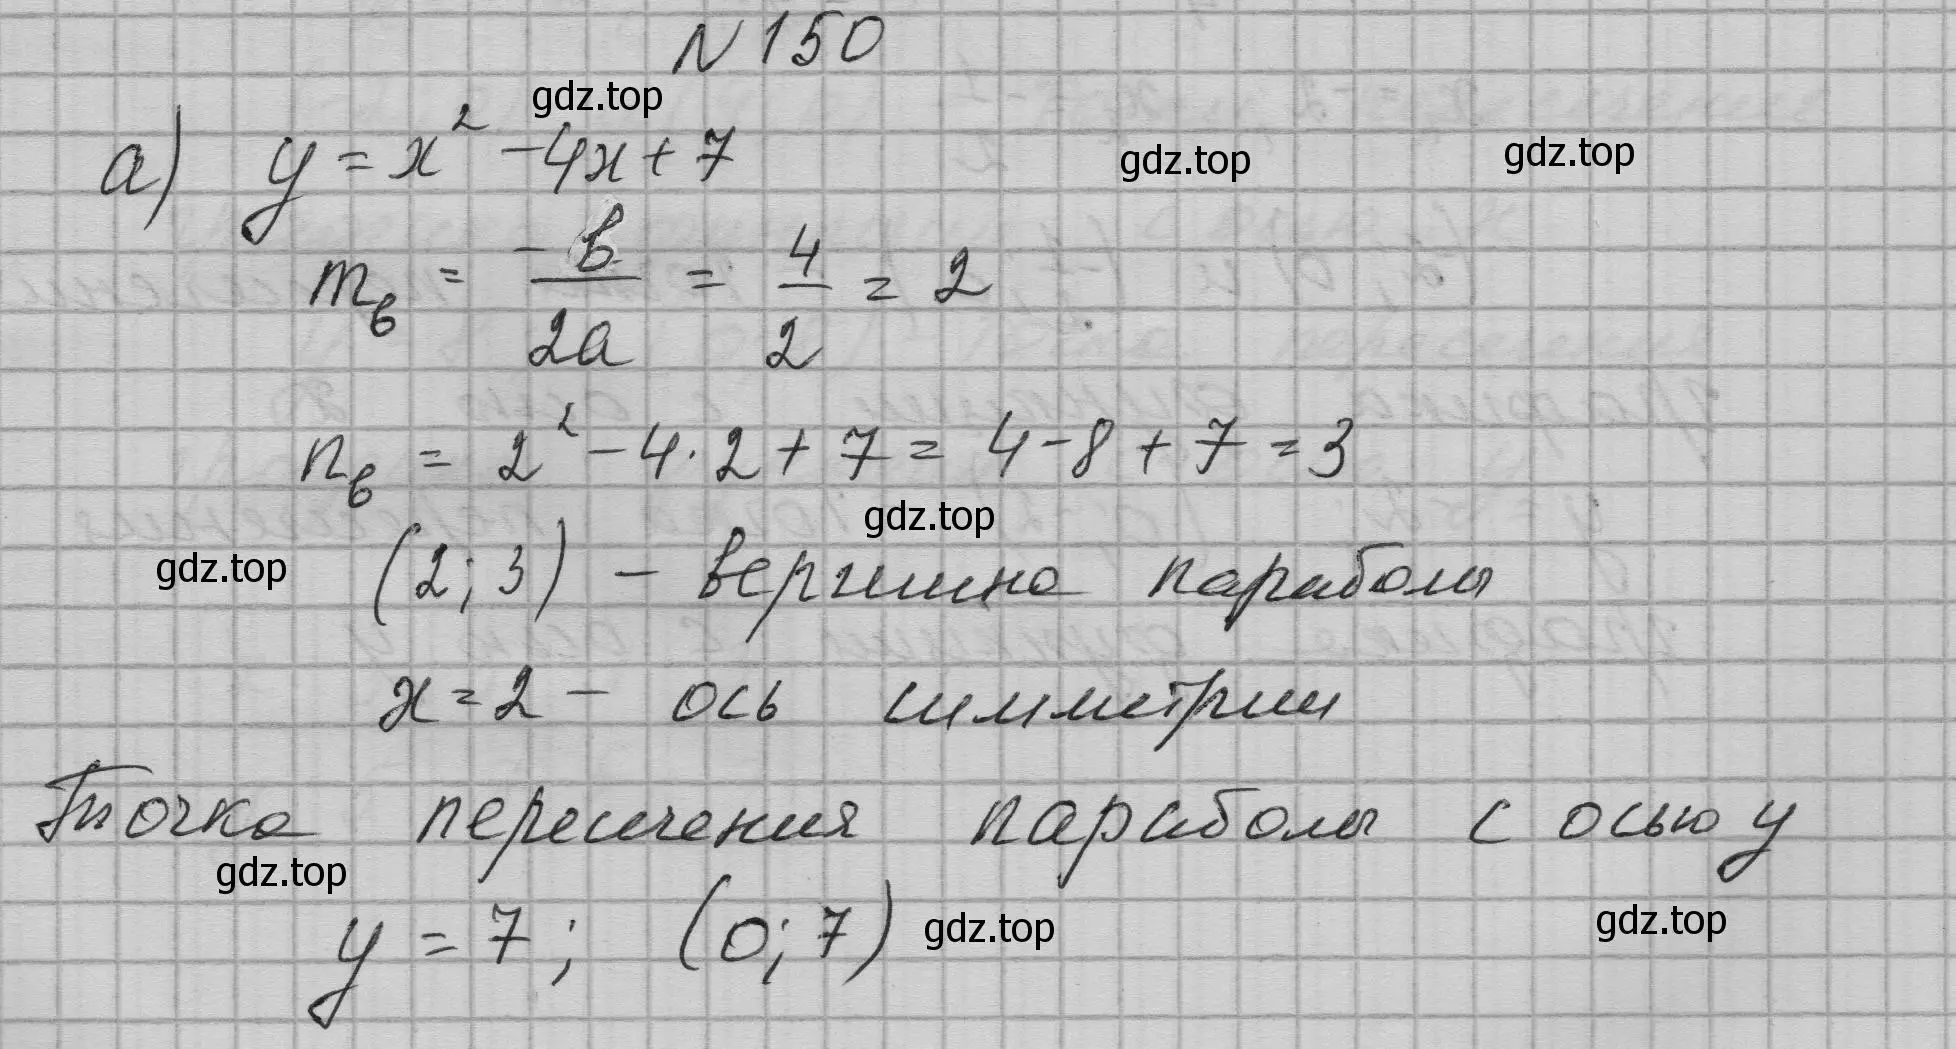 N 150
gdz.top
а) y = x² - 4x + 7
gdz.top
gdz.top
m_в = -b/2a = 4/2 = 2
n_в = 2² - 4·2 + 7 = 4 - 8 + 7 = 3
gdz.top
gdz.top
(2; 3) - вершина параболы
x = 2 - ось симметрии
Точка пересечения параболы с осью y
gdz.top
y = 7; (0; 7)
gdz.top
gdz.top